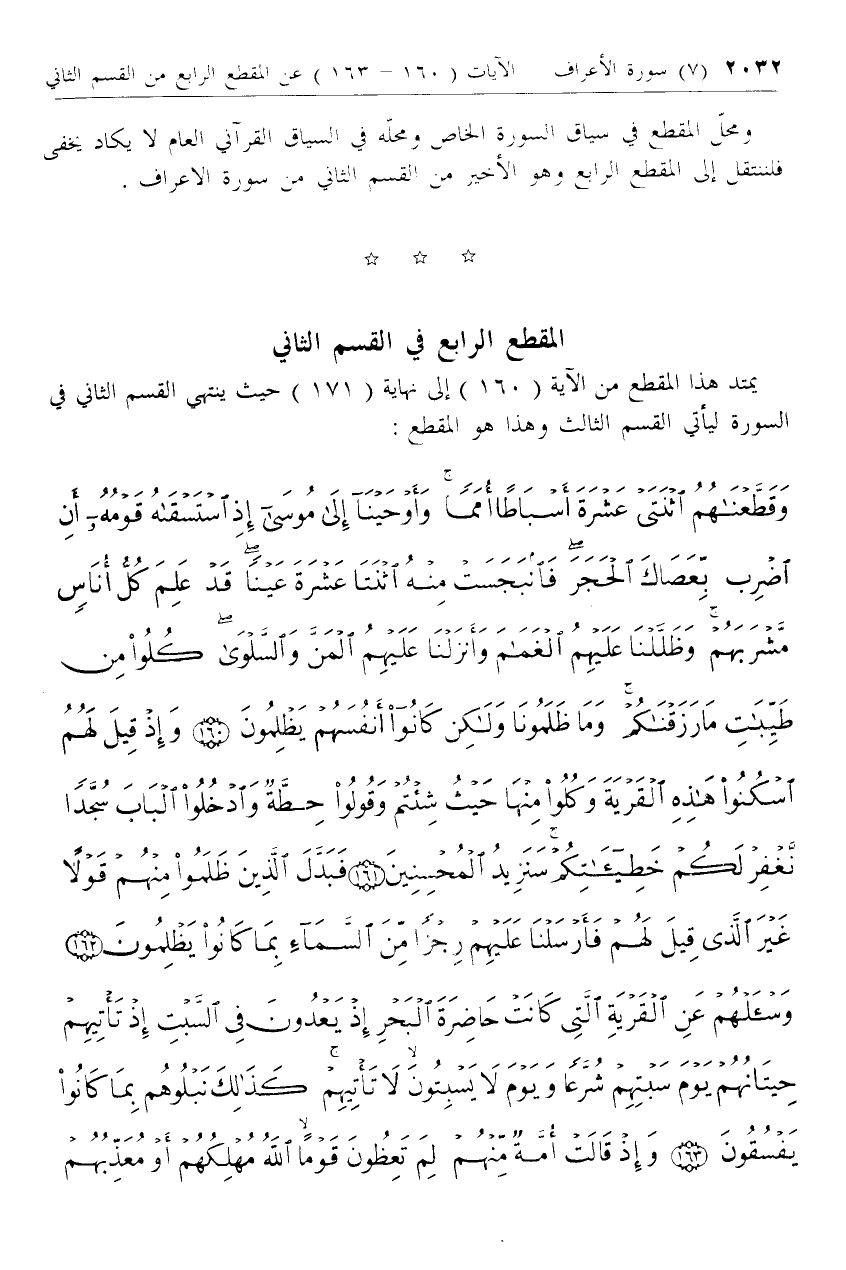 ٢٠٣٢ (٧) سورة الأعراف الآيات ( ١٦٠ - ١٦٣ ) عن المقطع الرابع من القسم الثاني
ومحلّ المقطع في سياق السورة الخاص ومحلّه في السياق القرآني العام لا يكاد يخفى
فلننتقل إلى المقطع الرابع وهو الأخير من القسم الثاني من سورة الاعراف .
☆ ☆ ☆
المقطع الرابع في القسم الثاني
يمتد هذا المقطع من الآية ( ١٦٠ ) إلى نهاية ( ١٧١ ) حيث ينتهي القسم الثاني في
السورة ليأتي القسم الثالث وهذا هو المقطع :
وَقَطَّعْنَٰهُمُ ٱثْنَتَىْ عَشْرَةَ أَسْبَاطًا أُمَمًا ۚ وَأَوْحَيْنَآ إِلَىٰ مُوسَىٰٓ إِذِ ٱسْتَسْقَىٰهُ قَوْمُهُۥٓ أَنِ
ٱضْرِب بِّعَصَاكَ ٱلْحَجَرَ ۖ فَٱنۢبَجَسَتْ مِنْهُ ٱثْنَتَا عَشْرَةَ عَيْنًا ۖ قَدْ عَلِمَ كُلُّ أُنَاسٍ
مَّشْرَبَهُمْ ۚ وَظَلَّلْنَا عَلَيْهِمُ ٱلْغَمَٰمَ وَأَنزَلْنَا عَلَيْهِمُ ٱلْمَنَّ وَٱلسَّلْوَىٰ ۖ كُلُوا۟ مِن
طَيِّبَٰتِ مَا رَزَقْنَٰكُمْ ۚ وَمَا ظَلَمُونَا وَلَٰكِن كَانُوٓا۟ أَنفُسَهُمْ يَظْلِمُونَ ١٦٠ وَإِذْ قِيلَ لَهُمُ
ٱسْكُنُوا۟ هَٰذِهِ ٱلْقَرْيَةَ وَكُلُوا۟ مِنْهَا حَيْثُ شِئْتُمْ وَقُولُوا۟ حِطَّةٌ وَٱدْخُلُوا۟ ٱلْبَابَ سُجَّدًا
نَّغْفِرْ لَكُمْ خَطِيٓـَٰٔتِكُمْ ۚ سَنَزِيدُ ٱلْمُحْسِنِينَ ١٦١ فَبَدَّلَ ٱلَّذِينَ ظَلَمُوا۟ مِنْهُمْ قَوْلًا
غَيْرَ ٱلَّذِى قِيلَ لَهُمْ فَأَرْسَلْنَا عَلَيْهِمْ رِجْزًا مِّنَ ٱلسَّمَآءِ بِمَا كَانُوا۟ يَظْلِمُونَ ١٦٢
وَسْـَٔلْهُمْ عَنِ ٱلْقَرْيَةِ ٱلَّتِى كَانَتْ حَاضِرَةَ ٱلْبَحْرِ إِذْ يَعْدُونَ فِى ٱلسَّبْتِ إِذْ تَأْتِيهِمْ
حِيتَانُهُمْ يَوْمَ سَبْتِهِمْ شُرَّعًا وَيَوْمَ لَا يَسْبِتُونَ ۙ لَا تَأْتِيهِمْ ۚ كَذَٰلِكَ نَبْلُوهُم بِمَا كَانُوا۟
يَفْسُقُونَ ١٦٣ وَإِذْ قَالَتْ أُمَّةٌ مِّنْهُمْ لِمَ تَعِظُونَ قَوْمًا ۙ ٱللَّهُ مُهْلِكُهُمْ أَوْ مُعَذِّبُهُمْ